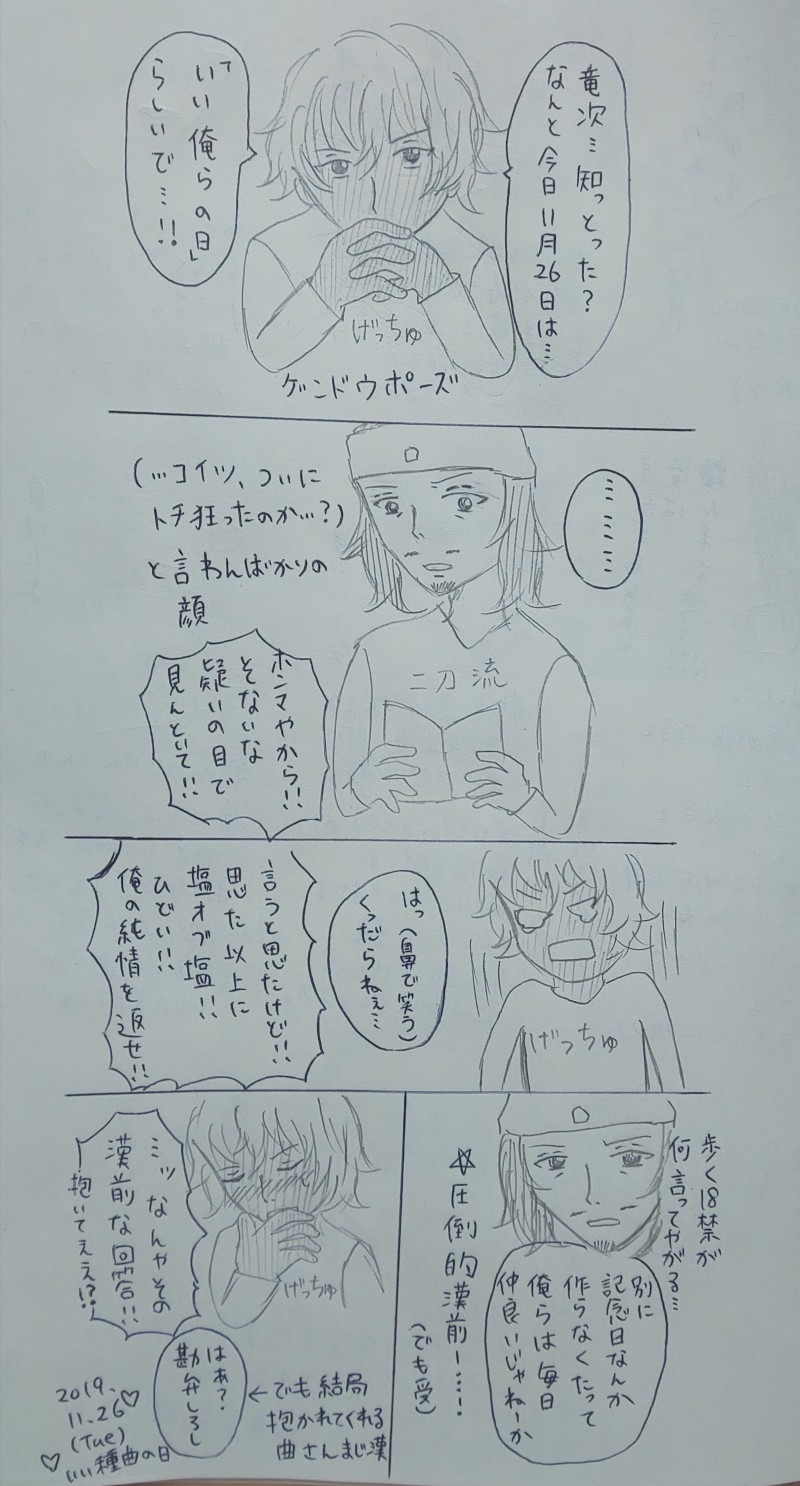 竜次…知っとった？
なんと今日11月26日は…
「いい俺らの日」
らしいで…!!
げっちゅ
ゲンドウポーズ
………
(…コイツ、ついに
トチ狂ったのか…?)
と言わんばかりの
顔
二刀流
ホンマやから!!
そないな
疑いの目で
見んといて!!
はっ(鼻で笑う)
くっだらねぇ…
言うと思たけど!!
思た以上に
塩オブ塩!!
ひどい!!
俺の純情を返せ!!
げっちゅ
歩く18禁が
何言ってやがる…
別に
記念日なんか
作らなくたって
俺らは毎日
仲良いじゃねーか
☆圧倒的漢前ー…!
(でも受)
ミッなんやその
漢前な回答!!
抱いてええ!?
げっちゅ
はぁ?
勘弁しろし
←でも結局
抱かれてくれる
曲さんまじ漢
2019.♡
11.26
(Tue)
♡いい種曲の日